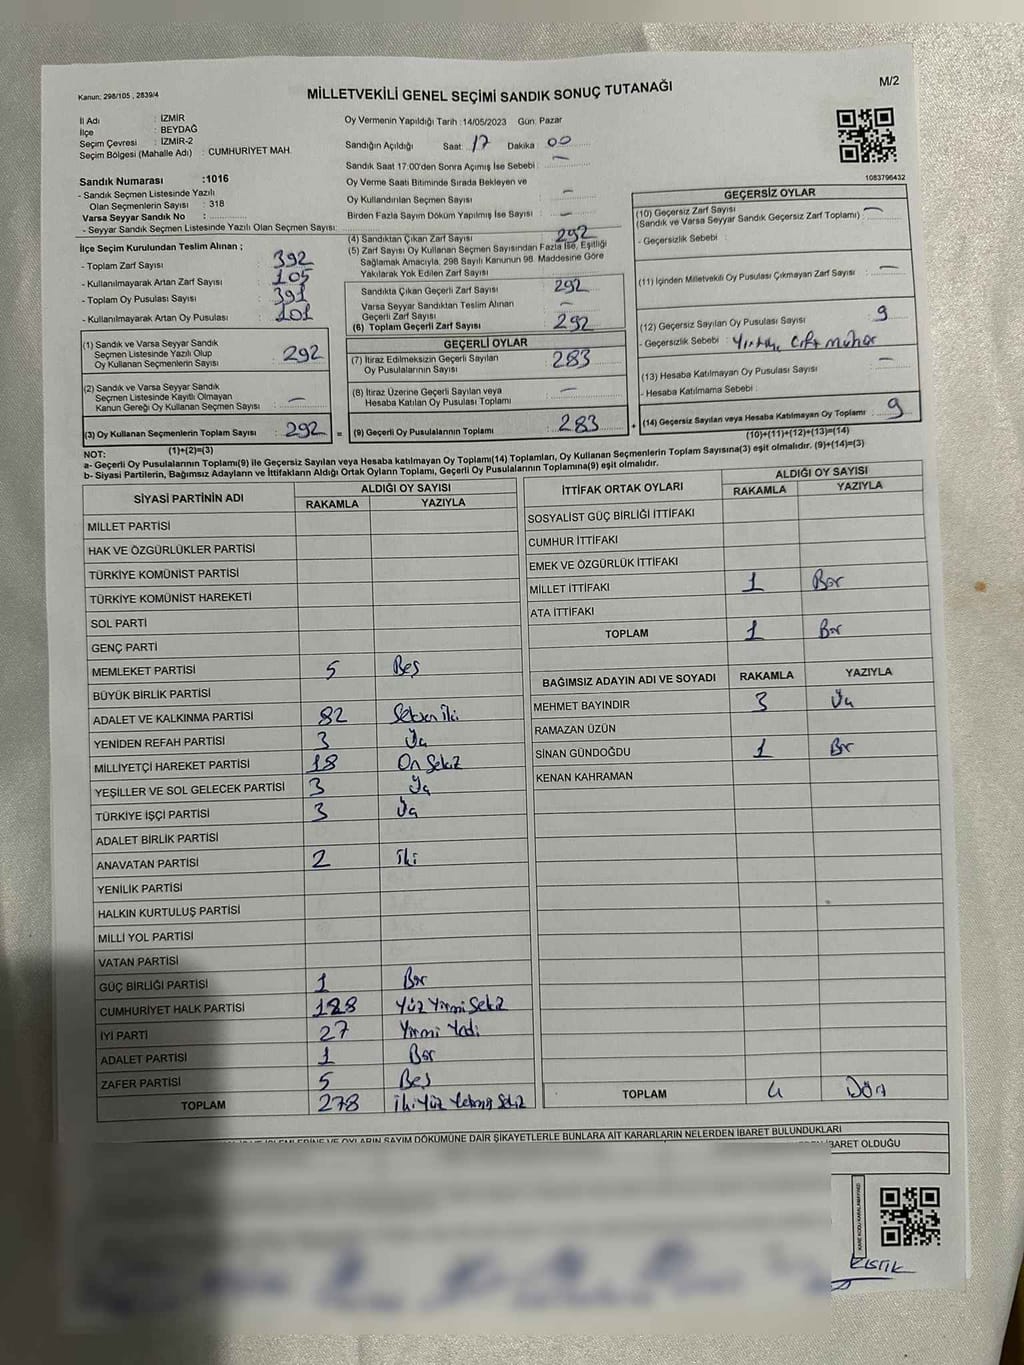 Kanun: 298/105 , 2839/4
MİLLETVEKİLİ GENEL SEÇİMİ SANDIK SONUÇ TUTANAĞI
M/2
İl Adı : İZMİR
İlçe : BEYDAĞ
Seçim Çevresi : İZMİR-2
Seçim Bölgesi (Mahalle Adı) : CUMHURİYET MAH.
Sandık Numarası :1016
- Sandık Seçmen Listesinde Yazılı
Olan Seçmenlerin Sayısı : 318
Varsa Seyyar Sandık No :
- Seyyar Sandık Seçmen Listesinde Yazılı Olan Seçmen Sayısı:
Oy Vermenin Yapıldığı Tarih :14/05/2023 Gün: Pazar
Sandığın Açıldığı Saat: 17 Dakika: 00
Sandık Saat 17:00'den Sonra Açımış İse Sebebi : —
Oy Verme Saati Bitiminde Sırada Bekleyen ve
Oy Kullandırılan Seçmen Sayısı : —
Birden Fazla Sayım Döküm Yapılmış İse Sayısı : —
1083796432
İlçe Seçim Kurulundan Teslim Alınan ;
- Toplam Zarf Sayısı : 392
- Kullanılmayarak Artan Zarf Sayısı : 105
- Toplam Oy Pusulası Sayısı : 391
- Kullanılmayarak Artan Oy Pusulası : 101
(1) Sandık ve Varsa Seyyar Sandık
Seçmen Listesinde Yazılı Olup
Oy Kullanan Seçmenlerin Sayısı : 292
(2) Sandık ve Varsa Seyyar Sandık
Seçmen Listesinde Kayıtlı Olmayan
Kanun Gereği Oy Kullanan Seçmen Sayısı : —
(3) Oy Kullanan Seçmenlerin Toplam Sayısı : 292
(4) Sandıktan Çıkan Zarf Sayısı : 292
(5) Zarf Sayısı Oy Kullanan Seçmen Sayısından Fazla İse, Eşitliği
Sağlamak Amacıyla, 298 Sayılı Kanunun 98. Maddesine Göre
Yakılarak Yok Edilen Zarf Sayısı :
Sandıkta Çıkan Geçerli Zarf Sayısı : 292
Varsa Seyyar Sandıktan Teslim Alınan
Geçerli Zarf Sayısı : —
(6) Toplam Geçerli Zarf Sayısı : 292
GEÇERLİ OYLAR
(7) İtiraz Edilmeksizin Geçerli Sayılan
Oy Pusulalarının Sayısı : 283
(8) İtiraz Üzerine Geçerli Sayılan veya
Hesaba Katılan Oy Pusulası Toplamı : —
= (9) Geçerli Oy Pusulalarının Toplamı : 283
GEÇERSİZ OYLAR
(10) Geçersiz Zarf Sayısı : —
(Sandık ve Varsa Seyyar Sandık Geçersiz Zarf Toplamı)
- Geçersizlik Sebebi :
(11) İçinden Milletvekili Oy Pusulası Çıkmayan Zarf Sayısı : —
(12) Geçersiz Sayılan Oy Pusulası Sayısı : 9
- Geçersizlik Sebebi : Yırtık, çift mühür
(13) Hesaba Katılmayan Oy Pusulası Sayısı : —
- Hesaba Katılmama Sebebi :
+ (14) Geçersiz Sayılan veya Hesaba Katılmayan Oy Toplamı : 9
(10)+(11)+(12)+(13)=(14)
NOT: (1)+(2)=(3)
a- Geçerli Oy Pusulalarının Toplamı(9) ile Geçersiz Sayılan veya Hesaba katılmayan Oy Toplamı(14) Toplamları, Oy Kullanan Seçmenlerin Toplam Sayısına(3) eşit olmalıdır. (9)+(14)=(3)
b- Siyasi Partilerin, Bağımsız Adayların ve İttifakların Aldığı Ortak Oyların Toplamı, Geçerli Oy Pusulalarının Toplamına(9) eşit olmalıdır.
SİYASİ PARTİNİN ADI ALDIĞI OY SAYISI
RAKAMLA YAZIYLA
MİLLET PARTİSİ
HAK VE ÖZGÜRLÜKLER PARTİSİ
TÜRKİYE KOMÜNİST PARTİSİ
TÜRKİYE KOMÜNİST HAREKETİ
SOL PARTİ
GENÇ PARTİ
MEMLEKET PARTİSİ 5 Beş
BÜYÜK BİRLİK PARTİSİ
ADALET VE KALKINMA PARTİSİ 82 Seksen İki
YENİDEN REFAH PARTİSİ 3 Üç
MİLLİYETÇİ HAREKET PARTİSİ 18 On Sekiz
YEŞİLLER VE SOL GELECEK PARTİSİ 3 Üç
TÜRKİYE İŞÇİ PARTİSİ 3 Üç
ADALET BİRLİK PARTİSİ
ANAVATAN PARTİSİ 2 İki
YENİLİK PARTİSİ
HALKIN KURTULUŞ PARTİSİ
MİLLİ YOL PARTİSİ
VATAN PARTİSİ
GÜÇ BİRLİĞİ PARTİSİ 1 Bir
CUMHURİYET HALK PARTİSİ 128 Yüz Yirmi Sekiz
İYİ PARTİ 27 Yirmi Yedi
ADALET PARTİSİ 1 Bir
ZAFER PARTİSİ 5 Beş
TOPLAM 278 İki Yüz Yetmiş Sekiz
İTTİFAK ORTAK OYLARI ALDIĞI OY SAYISI
RAKAMLA YAZIYLA
SOSYALİST GÜÇ BİRLİĞİ İTTİFAKI
CUMHUR İTTİFAKI
EMEK VE ÖZGÜRLÜK İTTİFAKI
MİLLET İTTİFAKI 1 Bir
ATA İTTİFAKI
TOPLAM 1 Bir
BAĞIMSIZ ADAYIN ADI VE SOYADI RAKAMLA YAZIYLA
MEHMET BAYINDIR 3 Üç
RAMAZAN ÜZÜN
SİNAN GÜNDOĞDU 1 Bir
KENAN KAHRAMAN
TOPLAM 4 Dört
OYLARIN SAYIM DÖKÜMÜNE DAİR ŞİKAYETLERLE BUNLARA AİT KARARLARIN NELERDEN İBARET BULUNDUKLARI
İBARET OLDUĞU
KARE KODU KARALAMAYINIZ